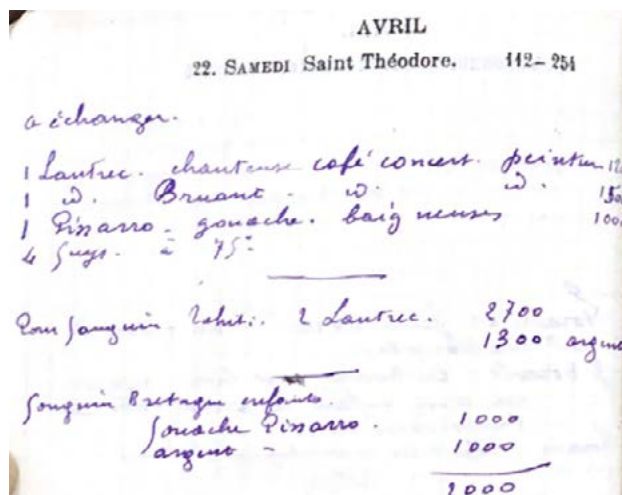 AVRIL
22. SAMEDI Saint Théodore. 112-254
a échanger.
1 Lautrec. chanteuse café concert. peinture 12
1 id. Bruant. id. id. 150
1 Pissarro - gouache. baigneuses 100
4 Guys. à 75.
Pour Gauguin Tahiti. 2 Lautrec. 2700
1300 argent
Gauguin Bretagne enfants.
Gouache Pissarro. 1000
argent - 1000
2000